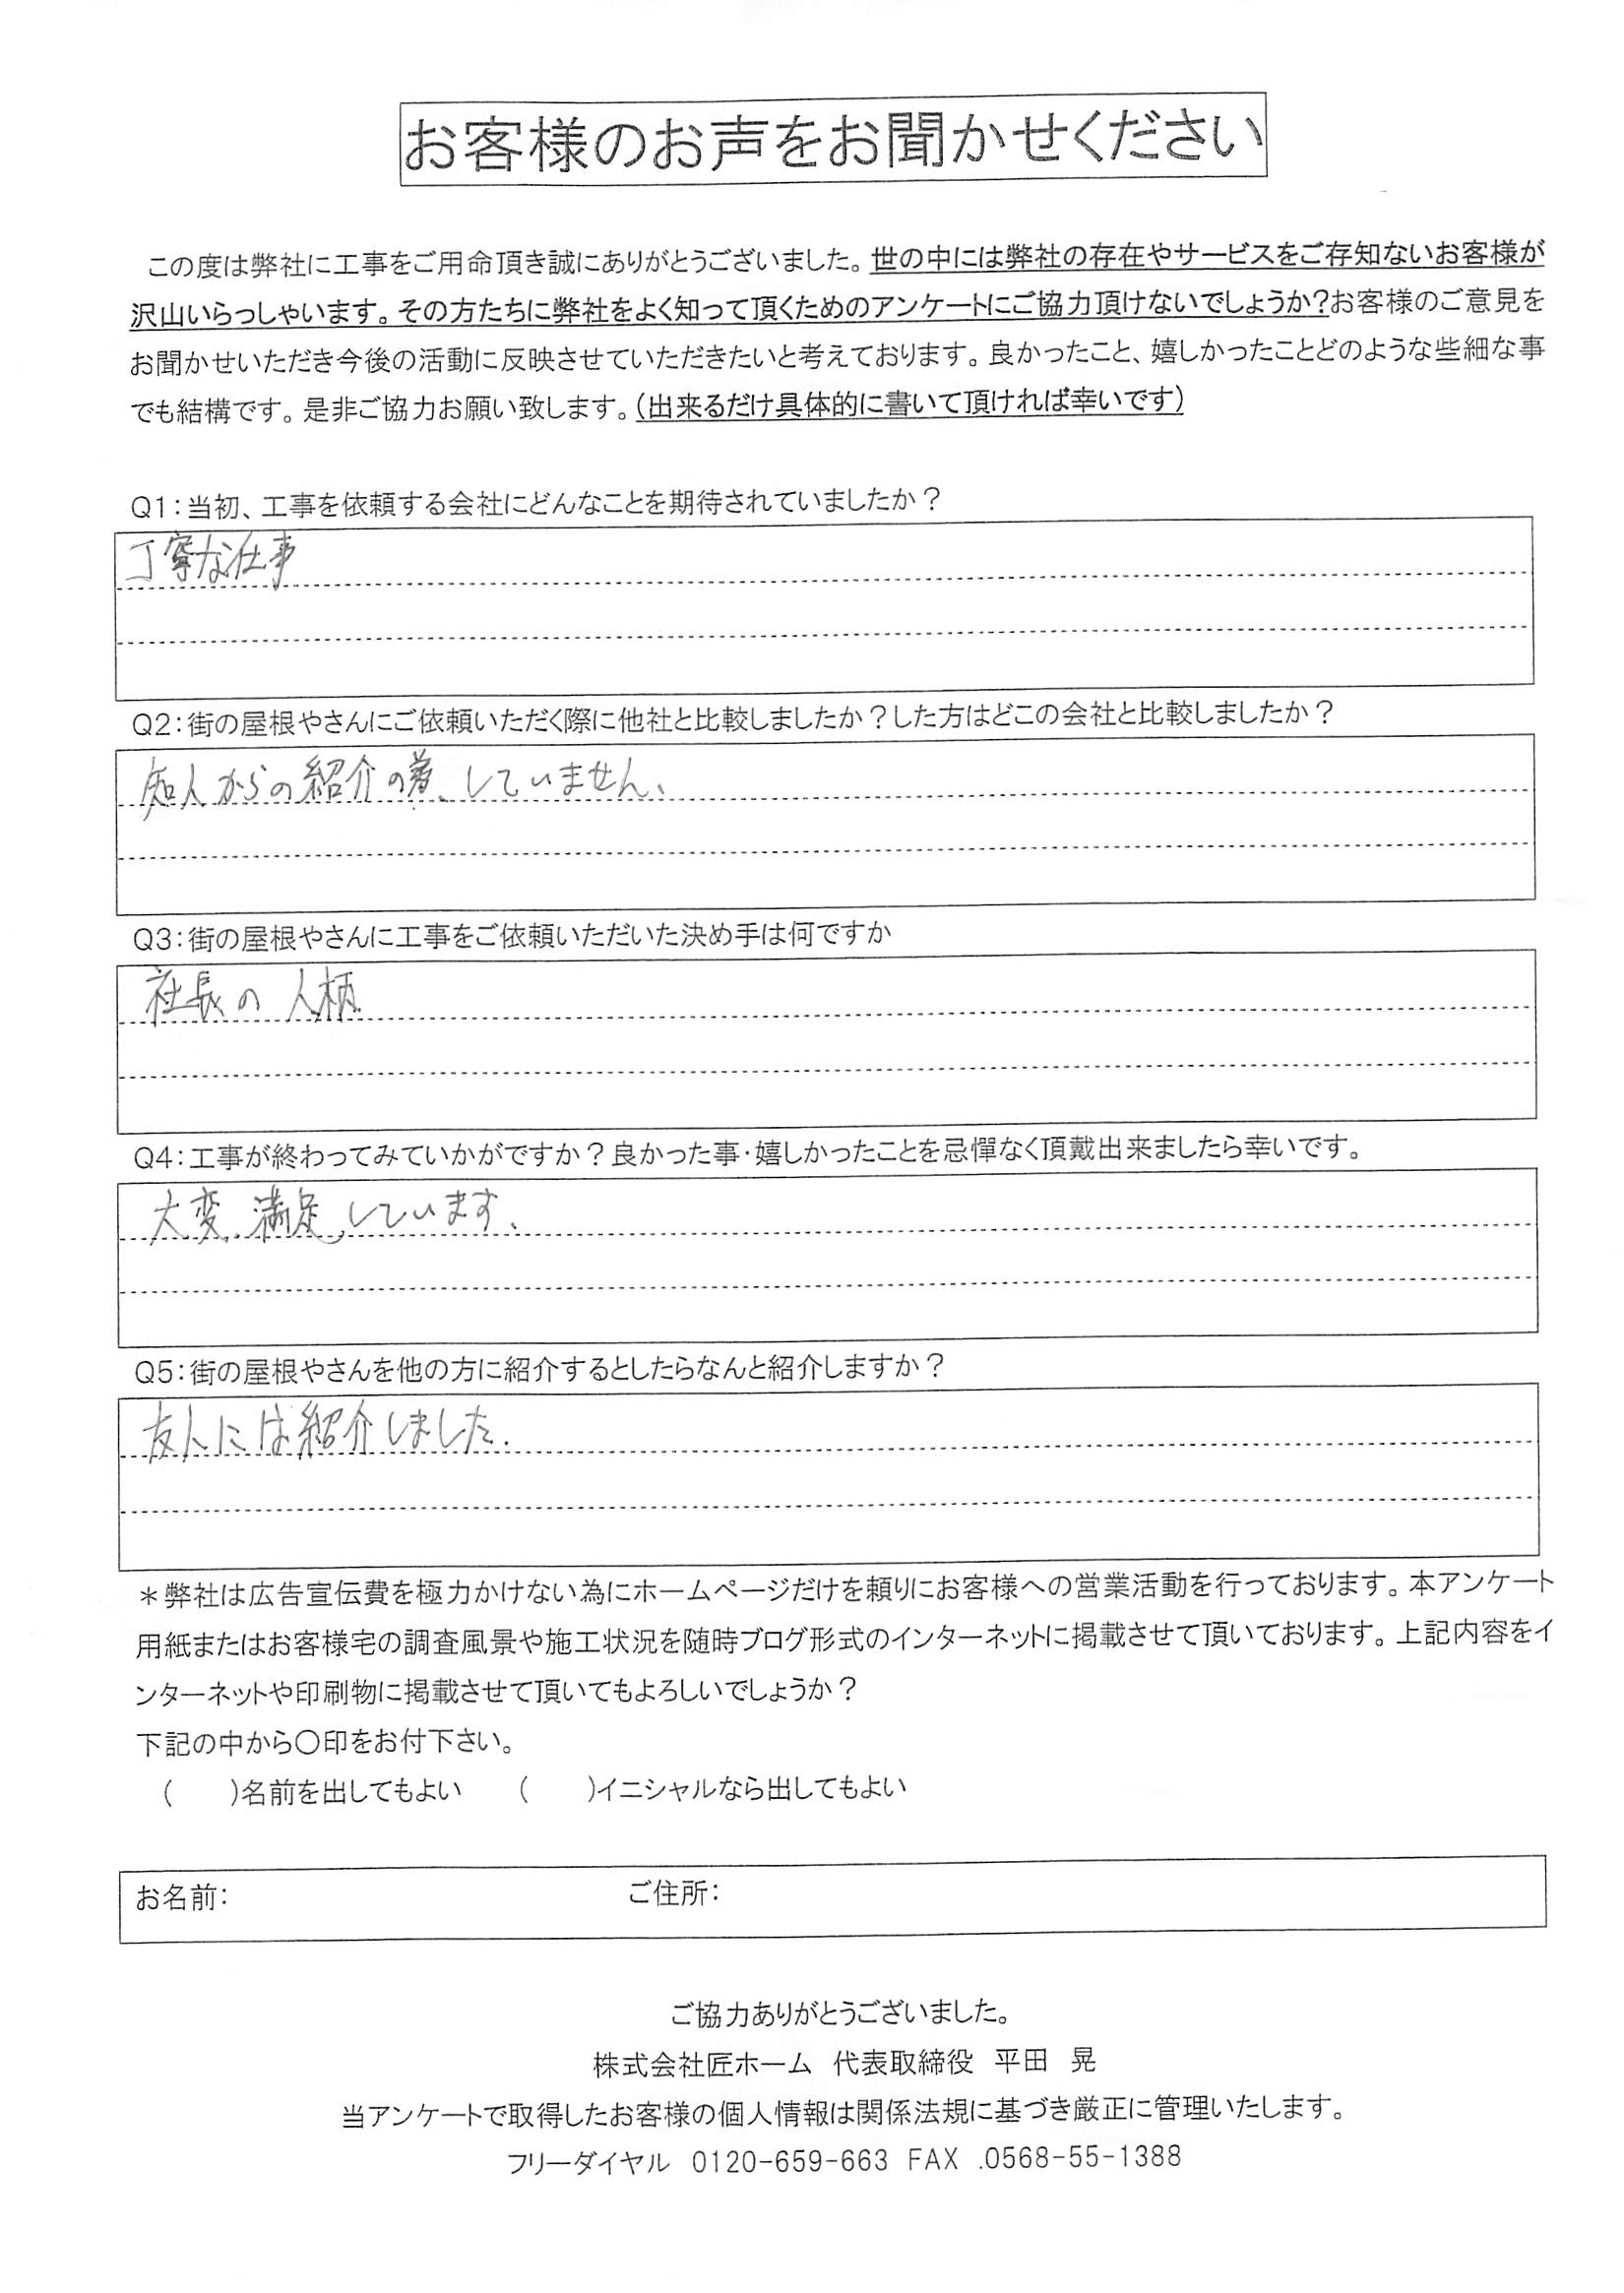 お客様のお声をお聞かせください
この度は弊社に工事をご用命頂き誠にありがとうございました。世の中には弊社の存在やサービスをご存知ないお客様が
沢山いらっしゃいます。その方たちに弊社をよく知って頂くためのアンケートにご協力頂けないでしょうか?お客様のご意見を
お聞かせいただき今後の活動に反映させていただきたいと考えております。良かったこと、嬉しかったことどのような些細な事
でも結構です。是非ご協力お願い致します。(出来るだけ具体的に書いて頂ければ幸いです)
Q1:当初、工事を依頼する会社にどんなことを期待されていましたか?
丁寧な仕事
Q2:街の屋根やさんにご依頼いただく際に他社と比較しましたか?した方はどこの会社と比較しましたか?
知人からの紹介の為、していません、
Q3:街の屋根やさんに工事をご依頼いただいた決め手は何ですか
社長の人柄
Q4:工事が終わってみていかがですか?良かった事・嬉しかったことを忌憚なく頂戴出来ましたら幸いです。
大変、満足しています、
Q5:街の屋根やさんを他の方に紹介するとしたらなんと紹介しますか?
友人には紹介しました.
*弊社は広告宣伝費を極力かけない為にホームページだけを頼りにお客様への営業活動を行っております。本アンケート
用紙またはお客様宅の調査風景や施工状況を随時ブログ形式のインターネットに掲載させて頂いております。上記内容をイ
ンターネットや印刷物に掲載させて頂いてもよろしいでしょうか?
下記の中から〇印をお付下さい。
(　　)名前を出してもよい　(　　)イニシャルなら出してもよい
お名前:　ご住所:
ご協力ありがとうございました。
株式会社匠ホーム　代表取締役　平田　晃
当アンケートで取得したお客様の個人情報は関係法規に基づき厳正に管理いたします。
フリーダイヤル　0120-659-663 FAX .0568-55-1388